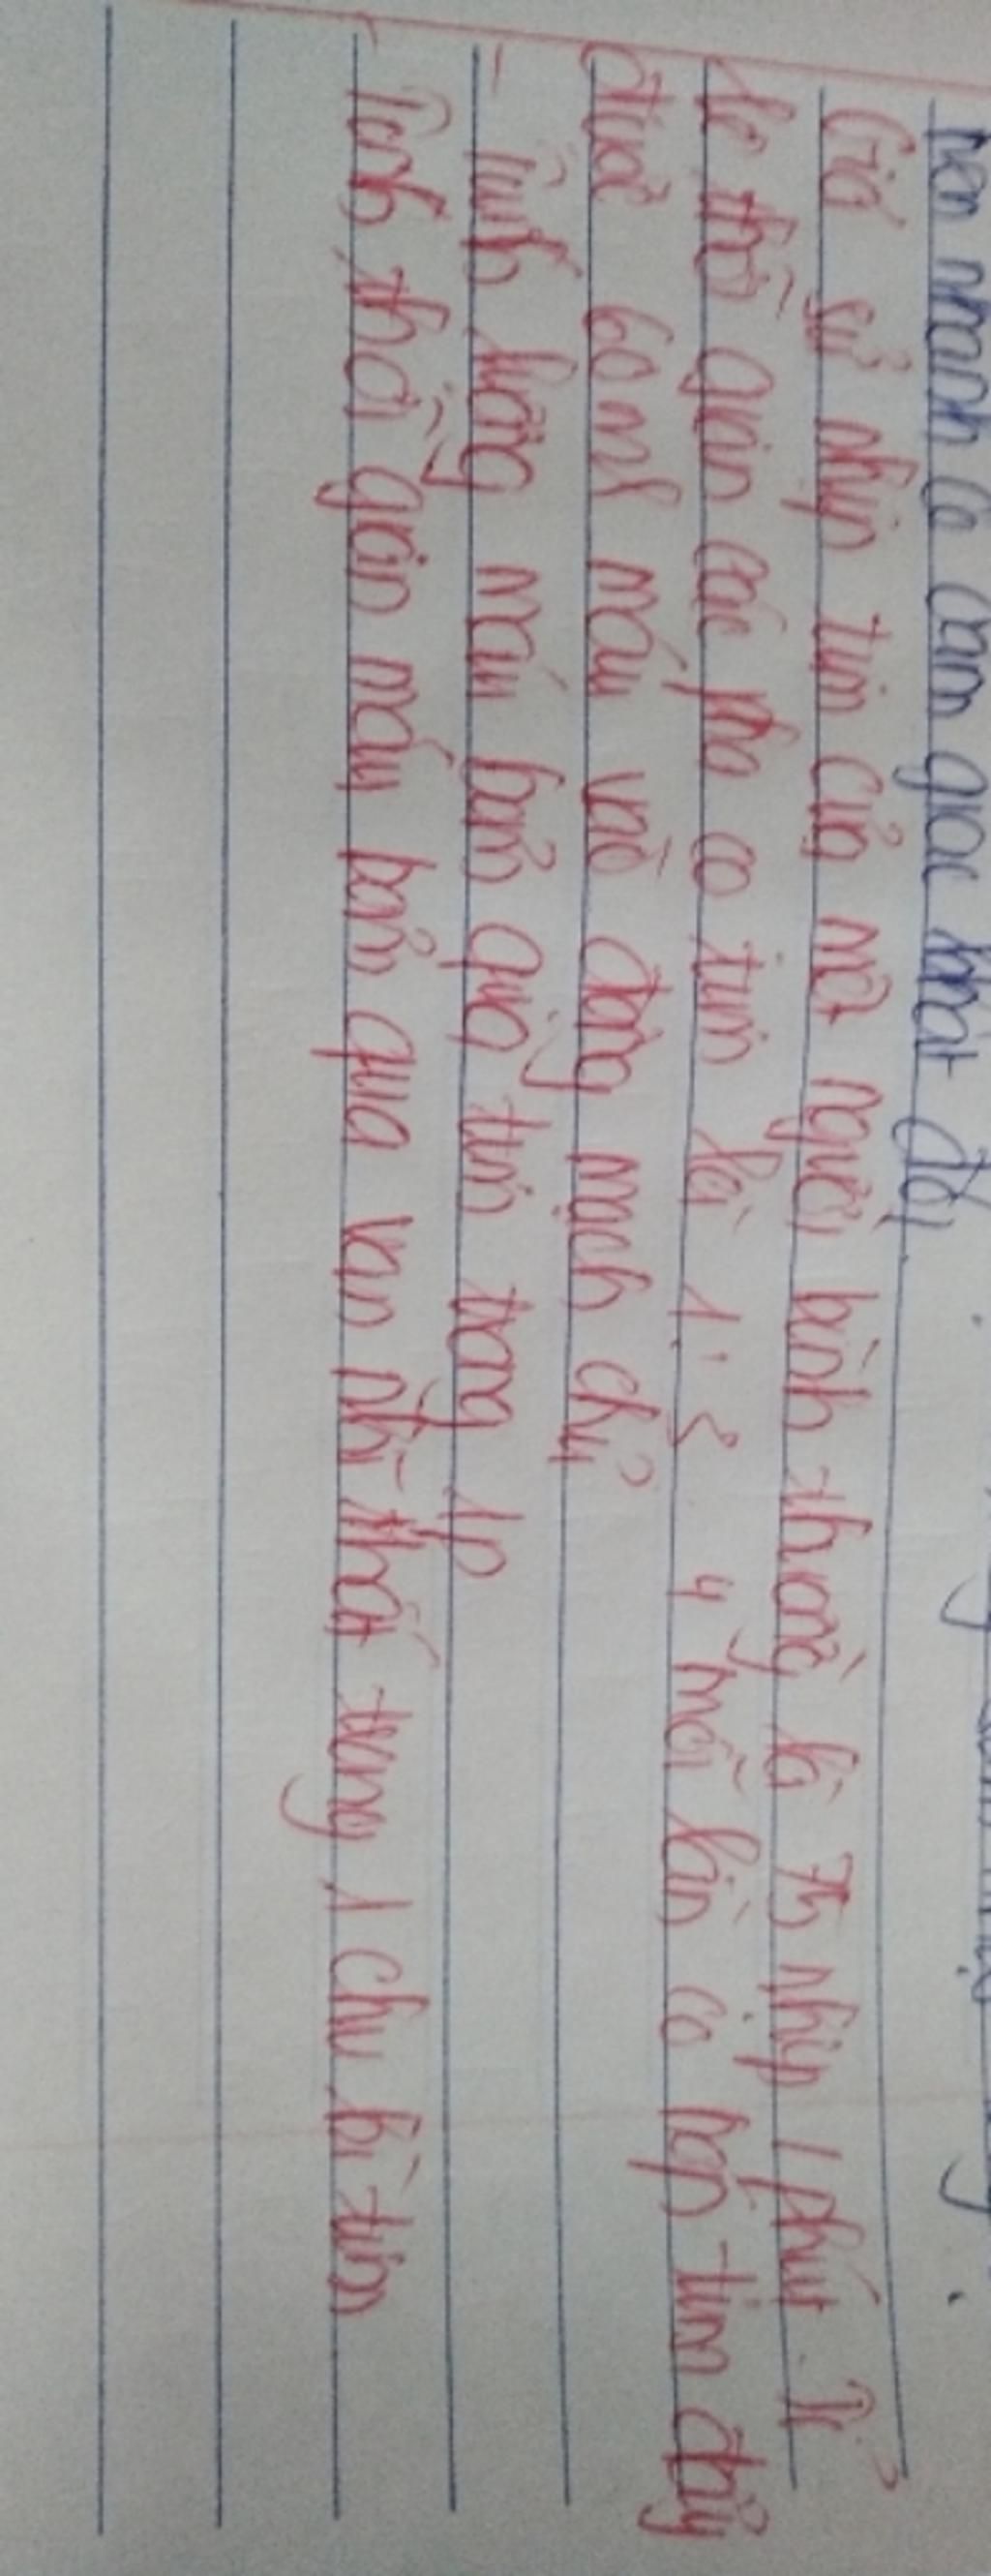 nên nhanh có cảm giác khát đấy.
Giả sử nhịp tim của một người bình thường là 75 nhịp / phút. Tỉ
lệ thời gian các pha co tim là 1: 3 : 4 mỗi lần co bóp tim đẩy
được 60 ml máu vào động mạch chủ
- Tính lượng máu bơm qua tim trong 1p
- Tính thời gian máu bơm qua van nhĩ thất trong 1 chu kì tim